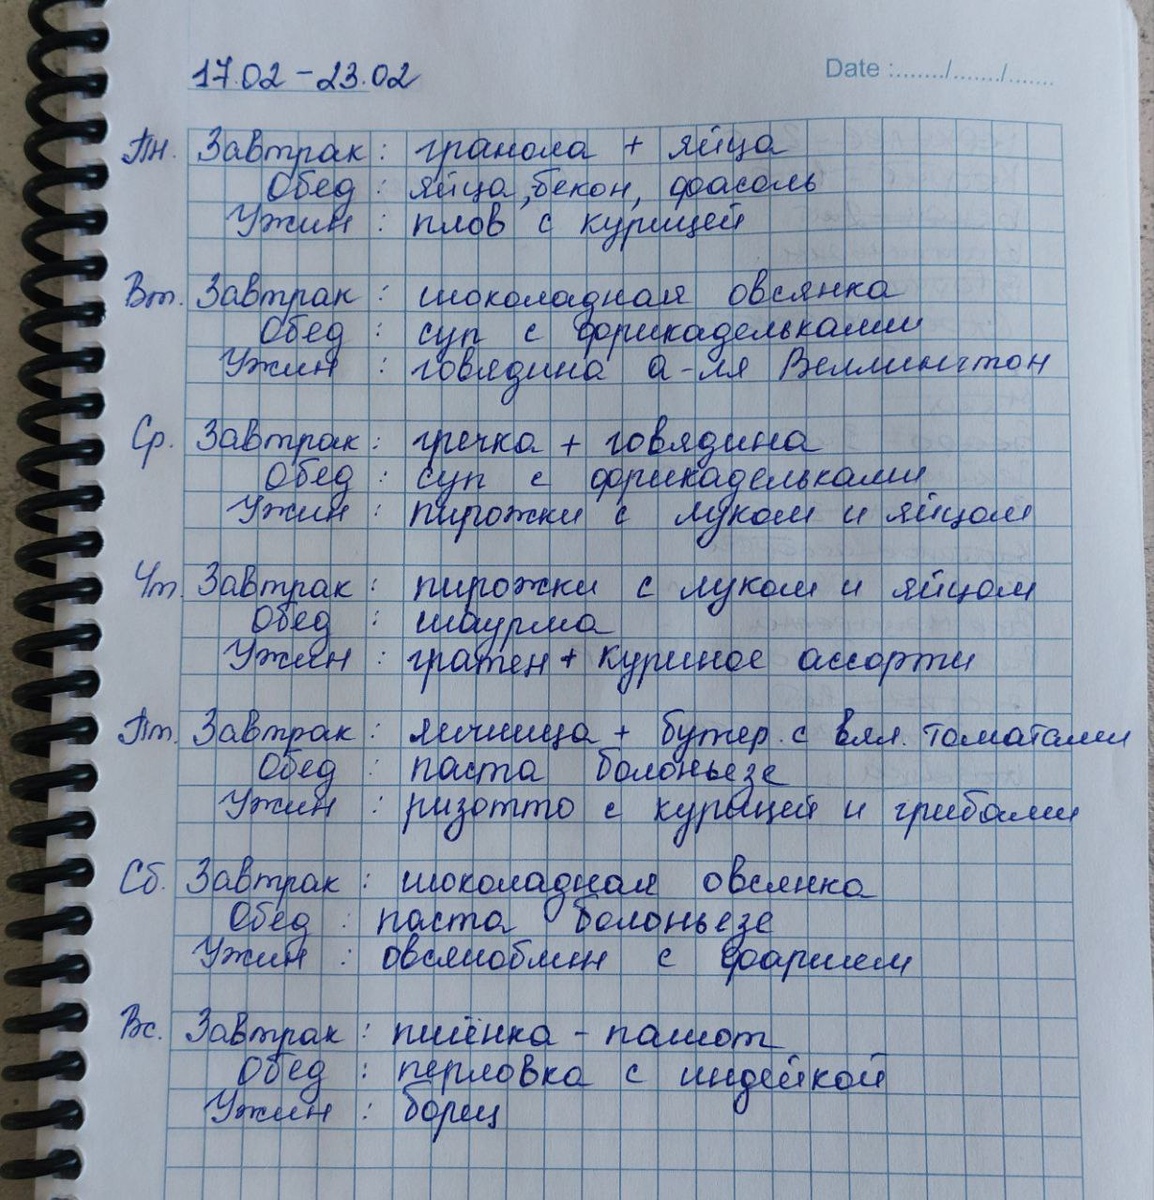 17.02 - 23.02
Date :......../......../........
Пн. Завтрак : гранола + яйца
Обед : яйца, бекон, фасоль
Ужин : плов с курицей
Вт. Завтрак : шоколадная овсянка
Обед : суп с фрикадельками
Ужин : говядина а-ля Веллингтон
Ср. Завтрак : гречка + говядина
Обед : суп с фрикадельками
Ужин : пирожки с луком и яйцом
Чт. Завтрак : пирожки с луком и яйцом
Обед : шаурма
Ужин : гратен + куриное ассорти
Пт. Завтрак : яичница + бутер. с вял. томатами
Обед : паста болоньезе
Ужин : ризотто с курицей и грибами
Сб. Завтрак : шоколадная овсянка
Обед : паста болоньезе
Ужин : овсяноблин с фаршем
Вс. Завтрак : пшёнка - пашот
Обед : перловка с индейкой
Ужин : борец